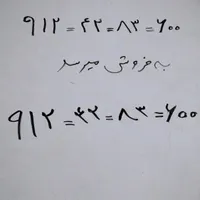 ۹۱۲=۴۲=۸۳=۶۰۰
به فروش میرسد
۹۱۲=۴۲=۸۳=۶۰۰